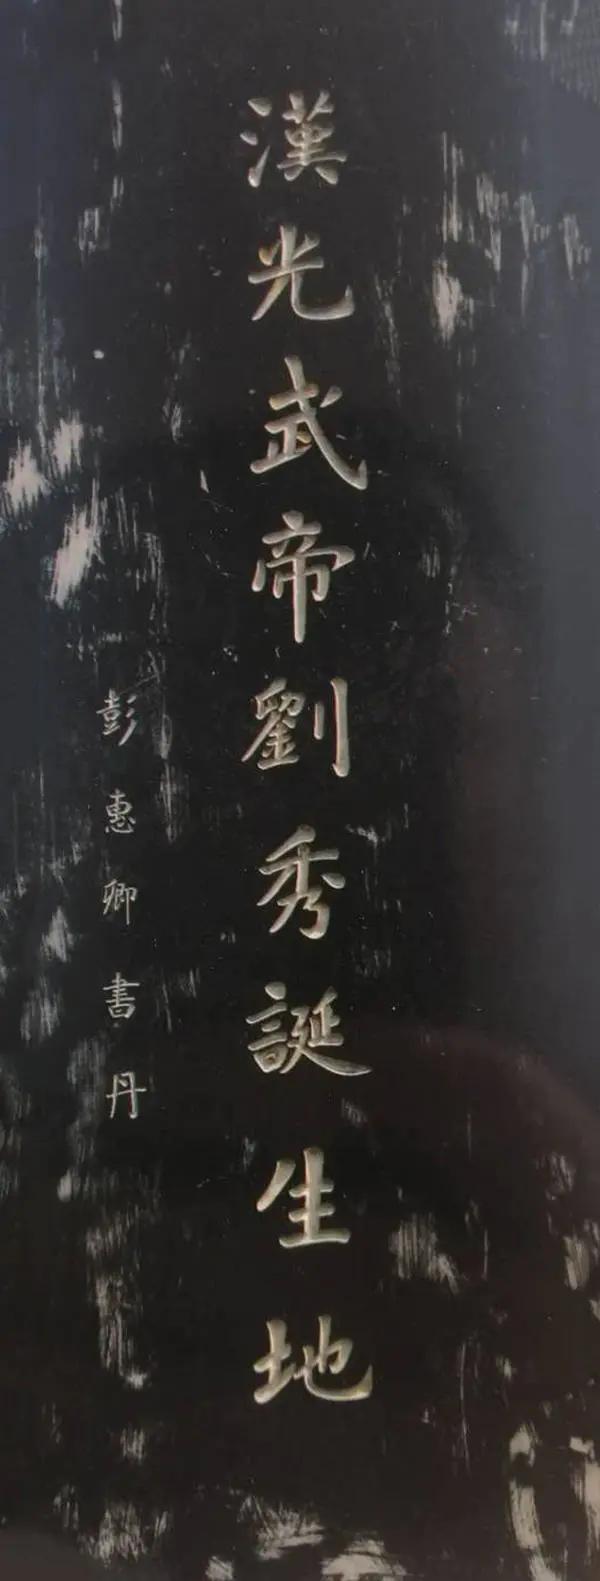 漢光武帝劉秀誕生地
彭惠卿書丹